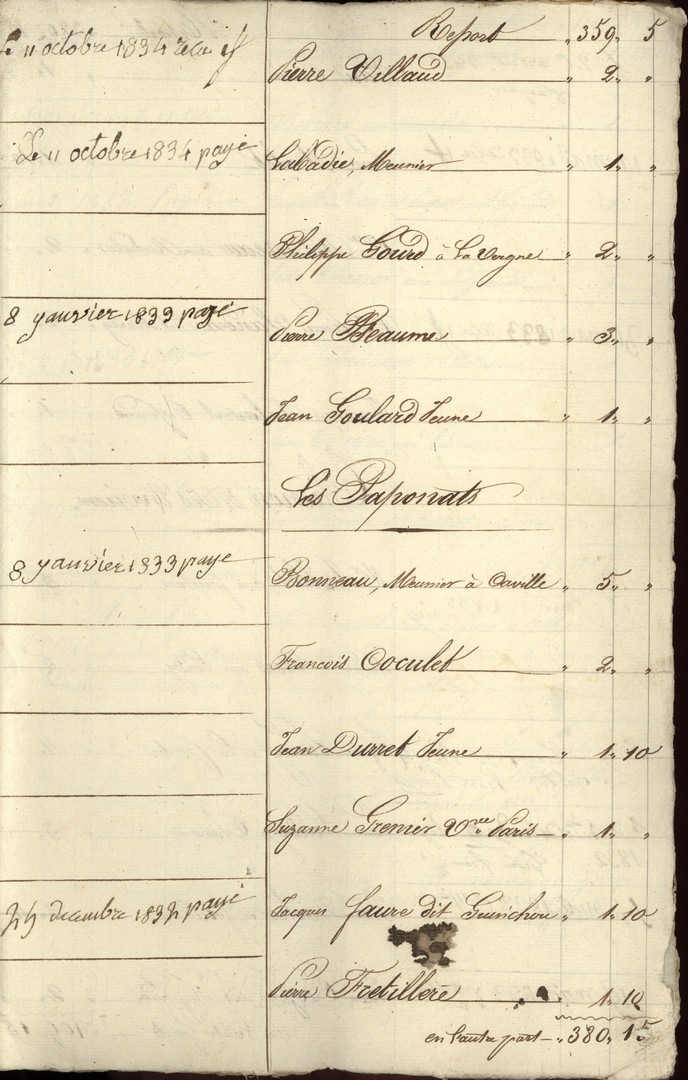 Report „ 359 „ 5
Le 11 octobre 1834
Pierre Villaud „ 2 „ „
Le 11 octobre 1834 payé
Labadie, Meunier „ 1 „ „
Philippe Gourd à La Vergne „ 2 „ „
8 yanvier 1833 payé
Pierre Beaume „ 3 „ „
Jean Goulard Jeune „ 1 „ „
Les Paponats
8 yanvier 1833 payé
Bonneau, Meunier à Oaville „ 5 „ „
Francois Coculet „ 2 „ „
Jean Durret Jeune „ 1 „ 10
Suzanne Grenier Vve Paris „ 1 „ „
24 decembre 1832 payé
Jacques faure dit Guinchou „ 1 „ 10
Pierre Fretillere „ 1 „ 10
en l'autre part „ 380 „ 15